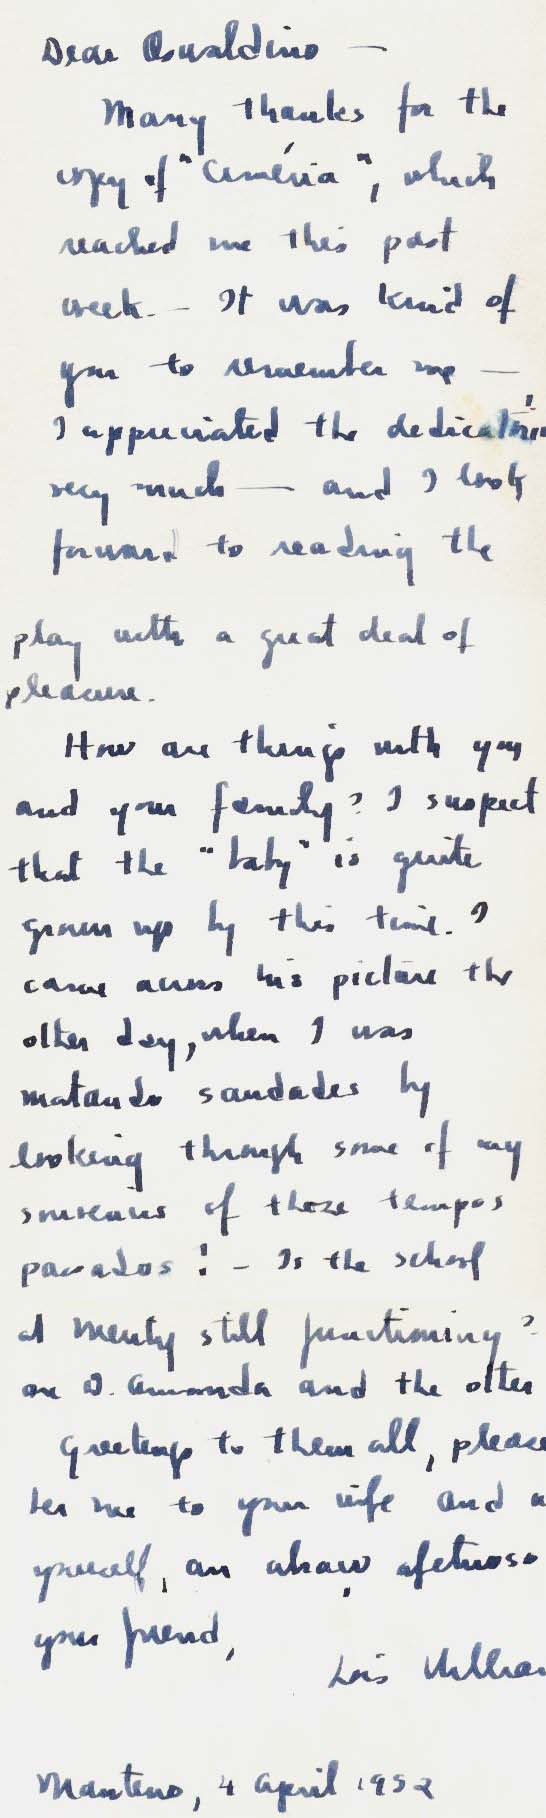 Dear Oswaldino —
Many thanks for the
copy of "Cemléria", which
reached me this past
week. — It was kind of
you to remember me —
I appreciated the dedicatória
very much — and I look
forward to reading the
play with a great deal of
pleasure.
How are things with you
and your family? I suspect
that the "baby" is quite
grown up by this time. I
came across his picture the
other day, when I was
matando saudades by
looking through some of my
souvenirs of those tempos
passados! — Is the school
at Menty still functioning?
are D. Amanda and the other
Greetings to them all, please
ber me to your wife and a
yourself, an abraço afetuoso
your friend,
Lois Willia
Manteno, 4 April 1952